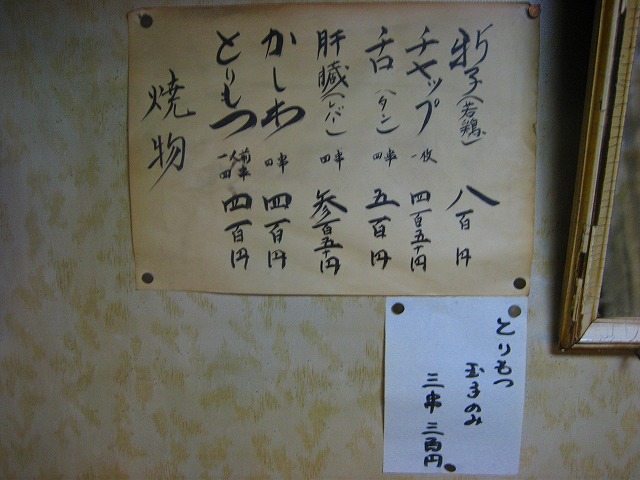 新子（若鶏）八百円
チャップ 一枚 四百五十円
舌（タン）四串 五百円
肝臓（レバー）四串 参百五十円
かしわ 四串 四百円
とりもつ 一人前四串 四百円
焼物
とりもつ
玉子のみ
三串 三百円